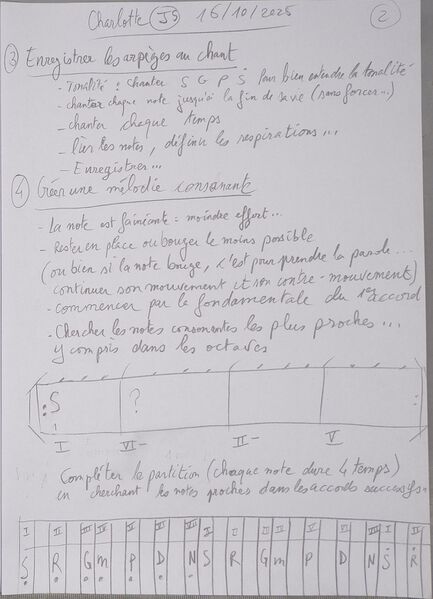 Charlotte JS 16/10/2025 2
3 Enregistrer les arpèges au chant
- Tonalité : chanter S G P Ṡ pour bien entendre la tonalité
- chanter chaque note jusqu'à la fin de sa vie (sans forcer...)
- chanter chaque temps
- lier les notes, définir les respirations...
- Enregistrer...
4 Créer une mélodie consonante
- La note est fainéante = moindre effort...
- Rester en place ou bouger le moins possible
(ou bien si la note bouge, c'est pour prendre la parole...
continuer son mouvement et non contre-mouvement)
- commencer par la fondamentale du 1er accord
- Chercher les notes consonantes les plus proches...
y compris dans les octaves
:S ? :
I VI- II- V
Compléter la partition (chaque note dure 4 temps)
en cherchant les notes proches dans les accords successifs.
I II III IV V VI VII I II III IV V VI VII I II
Ṣ R G m P D N S R G m P D N Ṡ Ṙ